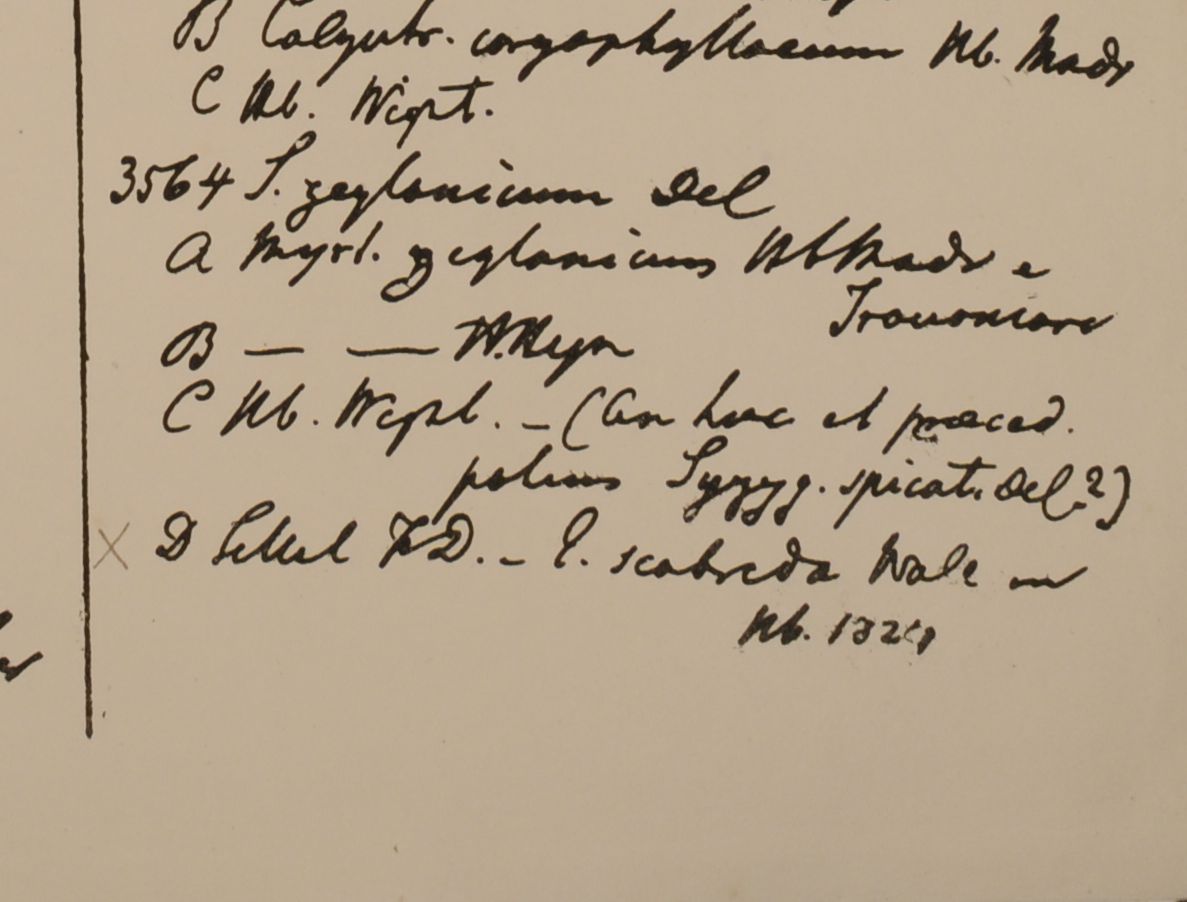 B Calyptr. caryophyllaeum Hb. Madr
C Hb. Wight.
3564 S. zeylanicum Del
A Myrt. zeylanicus Hb Madr e
Travancore
B — — H. Heyn
C Hb. Wight. – (An huc et praeced.
potius Syzyg. spicati Del.?)
X D Sillet F.D. – E. scabrida Wall in
Hb. 1824